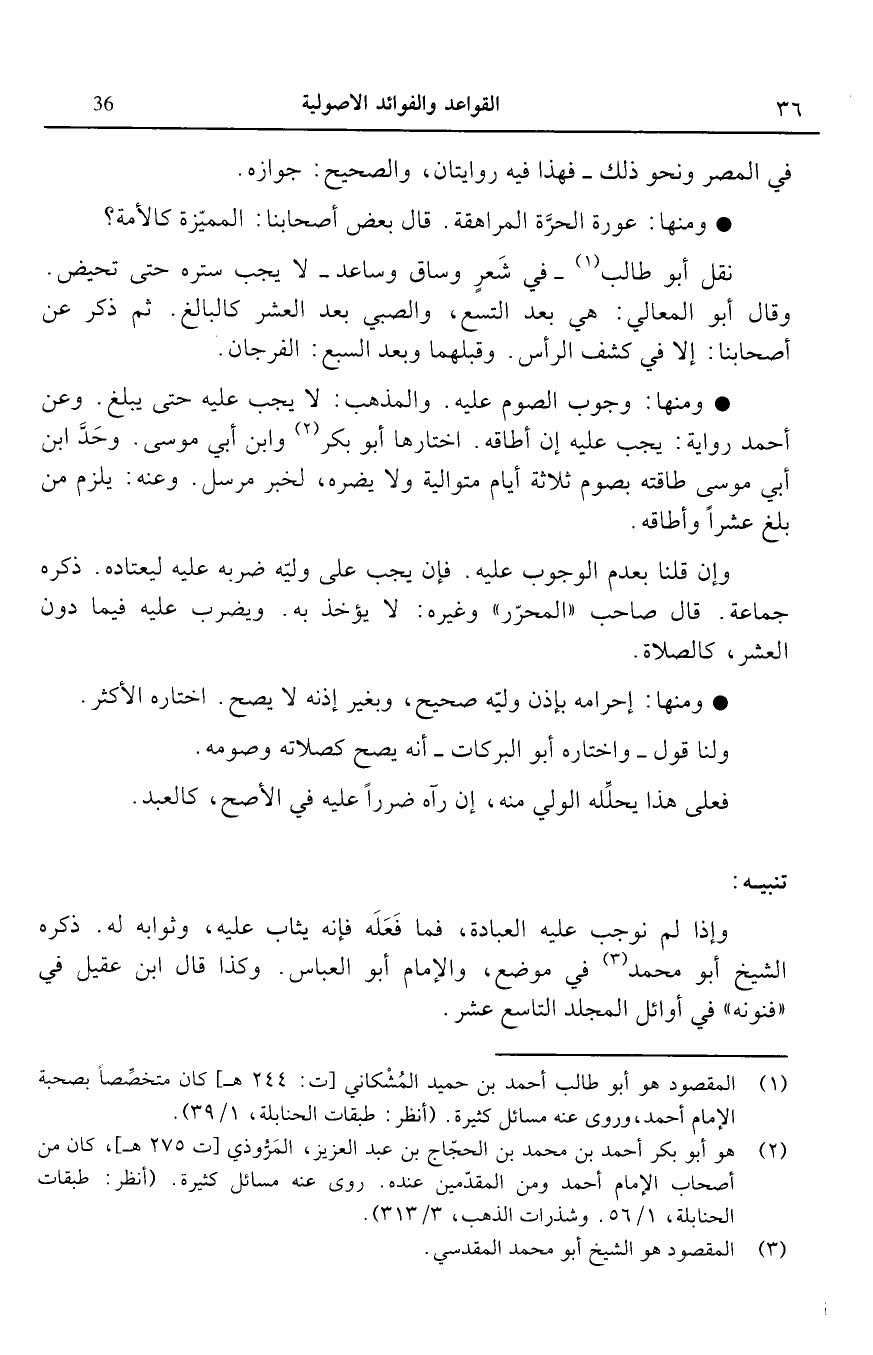 ٣٦ القواعد والفوائد الاصولية 36
في المصر ونحو ذلك ـ فهذا فيه روايتان، والصحيح: جوازه.
● ومنها: عورة الحرَّة المراهقة. قال بعض أصحابنا: المميّزة كالأمة؟
نقل أبو طالب(١) ـ في شَعرٍ وساق وساعد ـ لا يجب ستره حتى تحيض.
وقال أبو المعالي: هي بعد التسع، والصبي بعد العشر كالبالغ. ثم ذكر عن
أصحابنا: إلا في كشف الرأس. وقبلهما وبعد السبع: الفرجان.
● ومنها: وجوب الصوم عليه. والمذهب: لا يجب عليه حتى يبلغ. وعن
أحمد رواية: يجب عليه إن أطاقه. اختارها أبو بكر(٢) وابن أبي موسى. وحَدَّ ابن
أبي موسى طاقته بصوم ثلاثة أيام متوالية ولا يضره، لخبر مرسل. وعنه: يلزم من
بلغ عشراً وأطاقه.
وإن قلنا بعدم الوجوب عليه. فإن يجب على وليّه ضربه عليه ليعتاده. ذكره
جماعة. قال صاحب «المحرّر» وغيره: لا يؤخذ به. ويضرب عليه فيما دون
العشر، كالصلاة.
● ومنها: إحرامه بإذن وليّه صحيح، وبغير إذنه لا يصح. اختاره الأكثر.
ولنا قول ـ واختاره أبو البركات ـ أنه يصح كصلاته وصومه.
فعلى هذا يحلِّله الولي منه، إن رآه ضرراً عليه في الأصح، كالعبد.
تنبيـه:
وإذا لم نوجب عليه العبادة، فما فَعَلَه فإنه يثاب عليه، وثوابه له. ذكره
الشيخ أبو محمد(٣) في موضع، والإمام أبو العباس. وكذا قال ابن عقيل في
«فنونه» في أوائل المجلد التاسع عشر.
(١) المقصود هو أبو طالب أحمد بن حميد المُشْكاني [ت: ٢٤٤ هـ] كان متخصِّصاً بصحبة
الإمام أحمد، وروى عنه مسائل كثيرة. (أنظر: طبقات الحنابلة، ١/ ٣٩).
(٢) هو أبو بكر أحمد بن محمد بن الحجّاج بن عبد العزيز، المَرُّوذي [ت ٢٧٥ هـ]، كان من
أصحاب الإمام أحمد ومن المقدّمين عنده. روى عنه مسائل كثيرة. (أنظر: طبقات
الحنابلة، ١/ ٥٦. وشذرات الذهب، ٣/ ٣١٣).
(٣) المقصود هو الشيخ أبو محمد المقدسي.